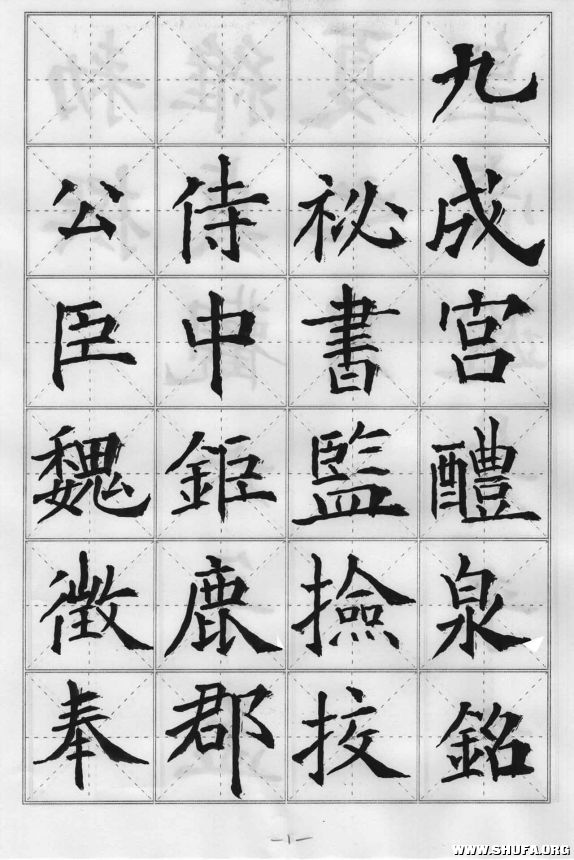 九成宮醴泉銘
祕書監撿挍
侍中鉅鹿郡
公臣魏徵奉
—1—
WWW.SHUFA.ORG